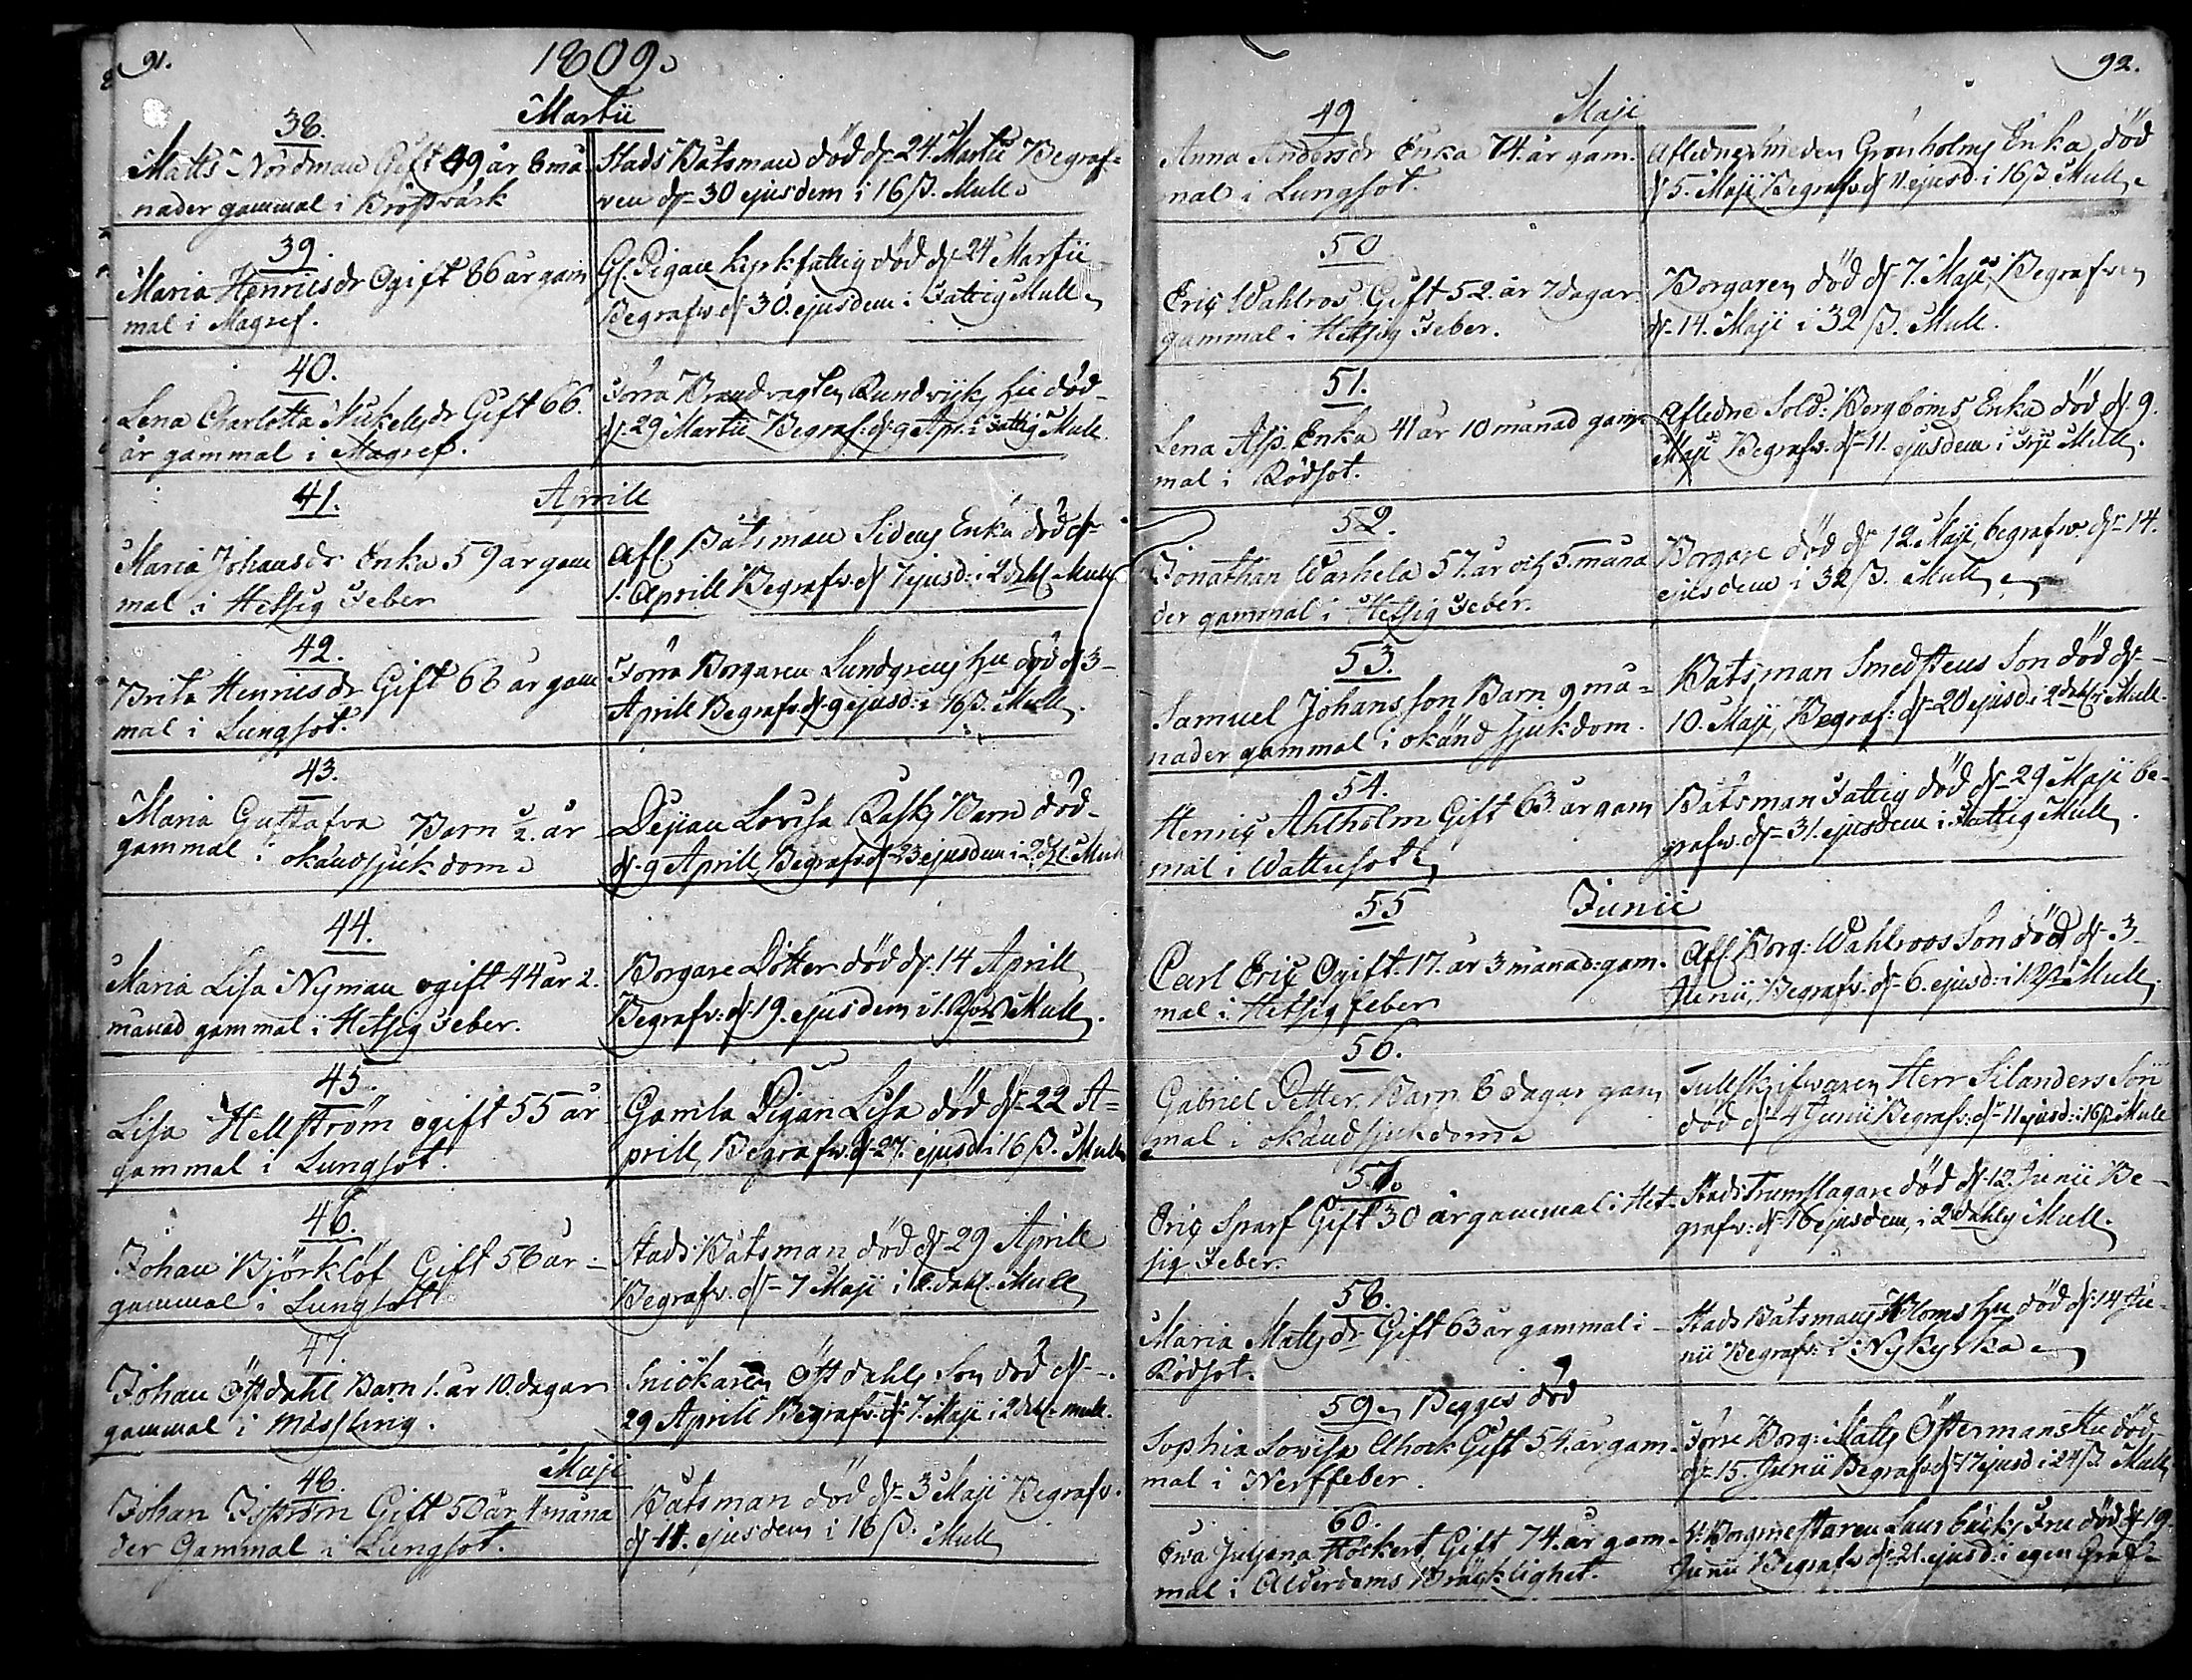 91.
1809.
Martii
38.
Matts Nordman Gift 49 år 8 må-
nader gammal i Bröstvärk
Stads Båtsman död d. 24 Martii Begraf-
ven d. 30 ejusdem i 16 ß. Mull.
39.
Maria Henricsdr Ogift 86 år gam
mal i Magref.
Gl. Pigan kyrkfattig död d. 24 Martii
Begrafv. d. 30. ejusdem i Fattig Mull.
40.
Lena Charlotta Mickelsdr Gift 66.
år gammal i Magref.
Förra Brandvagten Rundvijks Hu död
d. 29 Martii Begraf: d. 9 Apr. i Fattig Mull.
41.
Aprill
Maria Johansdr Enka 59 år gam
mal i Hetsig Feber
Afl Båtsman Sidens Enka död d.
1. Aprill Begrafv. d. 7 ejusd: i 2 dahl. Mull
42.
Brita Henricsdr Gift 68 år gam
mal i Lungsot.
Förra Borgaren Lundgrens Hu död d. 3
Aprill Begrafv. d. 9 ejusd: i 16 ß. Mull.
43.
Maria Gustafva Barn ½. år
gammal i okänd sjukdom.
Pejian Lovisa Rasks Barn död
d. 9 Aprill, Begrafv. d. 23 ejusdem i 2. dl. Mull
44.
Maria Lisa Nyman ogift 44 år 2.
månad gammal i Hetsig Feber.
Borgare Dotter död d. 14 Aprill
Begrafv: d. 19. ejusdem i 1. Mull.
45.
Lisa Hellström ogift 55 år
gammal i Lungsot.
Gamla Pigan Lisa död d. 22 A-
prill, Begrafv. d. 27. ejusd: i 16 ß. Mull
46.
Johan Björklöf Gift 58 år
gammal i Lungsot
Stads Båtsman död d. 29 Aprill
Begrafv. d. 7 Maji i 2. dahl. Mull
47.
Johan Östdahl Barn 1. år 10. dagar
gammal i Mässling.
Snickaren Östdahls Son död d.
29 Aprill Begrafv: d. 7. Maji i 2 dahl. mull.
Maji
48.
Johan Isström Gift 50 år 4 måna
der Gammal i Lungsot.
Båtsman död d. 3 Maji Begrafv.
d. 11. ejusdem i 16 ß. Mull
92.
Maji
49
Anna Andersdr Enka 74. år gam-
mal i Lungsot.
Aflednesmeden Grönholms Enka död
d. 5. Maji Begrafv. d. 11. ejusd: i 16 ß. Mull.
50
Eric Wahlros Gift 52. år 7 dagar
gammal i Hetsig Feber.
Borgaren död d. 7. Maji, Begrafven
d. 14. Maji i 32 ß. Mull.
51.
Lena Asp. Enka 41 år 10 månad gam-
mal i Rödsot.
Afledne Sold: Bergboms Enka död d. 9.
Maji Begrafv. d. 11. ejusdem i Fri Mull.
52.
Jonathan Warhela 57. år och 5. måna
der gammal i Hetsig Feber.
Borgare död d. 12 Maji, begrafv. d. 14.
ejusdem i 32 ß. Mull
53.
Samuel Johansson Barn 9 må-
nader gammal i okänd sjukdom.
Båtsman Smedstens Son död d.
10. Maji, Begraf: d. 20 ejusd: i 2 dahl. Mull.
54.
Henric Ahlholm Gift 63. år gam
mal i Wattusot
Båtsman Fattig död d. 29 Maji be-
grafv. d. 31. ejusdem i Fattig Mull.
55
Junii
Carl Eric Ogift. 17. år 3 månad: gam-
mal i Hetsig feber
Afl. Borg: Wahlroos Son död d. 3
Junii, Begrafv: d. 6. ejusd: i Mull.
56.
Gabriel Petter Barn 6 dagar gam
mal i okänd sjukdom
Tullskrifvaren Herr Silanders Son
död d. 4 Junii Begrafv: d. 11 ejusd: i 16 ß Mull
57.
Eric Sparf Gift 30 år gammal i Het-
sig Feber.
Stads Trumslagare död d. 12. Junii Be-
grafv: d. 16 ejusdem, i 2 dahls Mull.
58.
Maria Matsdr Gift 63 år gammal i
Rödsot.
Stads Båtsmans Bloms Hu död d. 14 Ju-
nii Begrafv: i Nykyrka
59. Begges död
Sophia Lowisa Ahock Gift 54. år gam-
mal i Nerffeber.
Förre Borg: Matts Östermans Hu död
d. 15. Junii Begrafv. d. 17 ejusd i 24 ß Mull
60.
Ewa Juliana Höckert, Gift 74. år gam-
mal i Ålderdoms Bräcklighet.
H. Borgmestaren Laurbäcks Fru död d. 19.
Junii Begrafv. d. 21. ejusd: i egen Graf